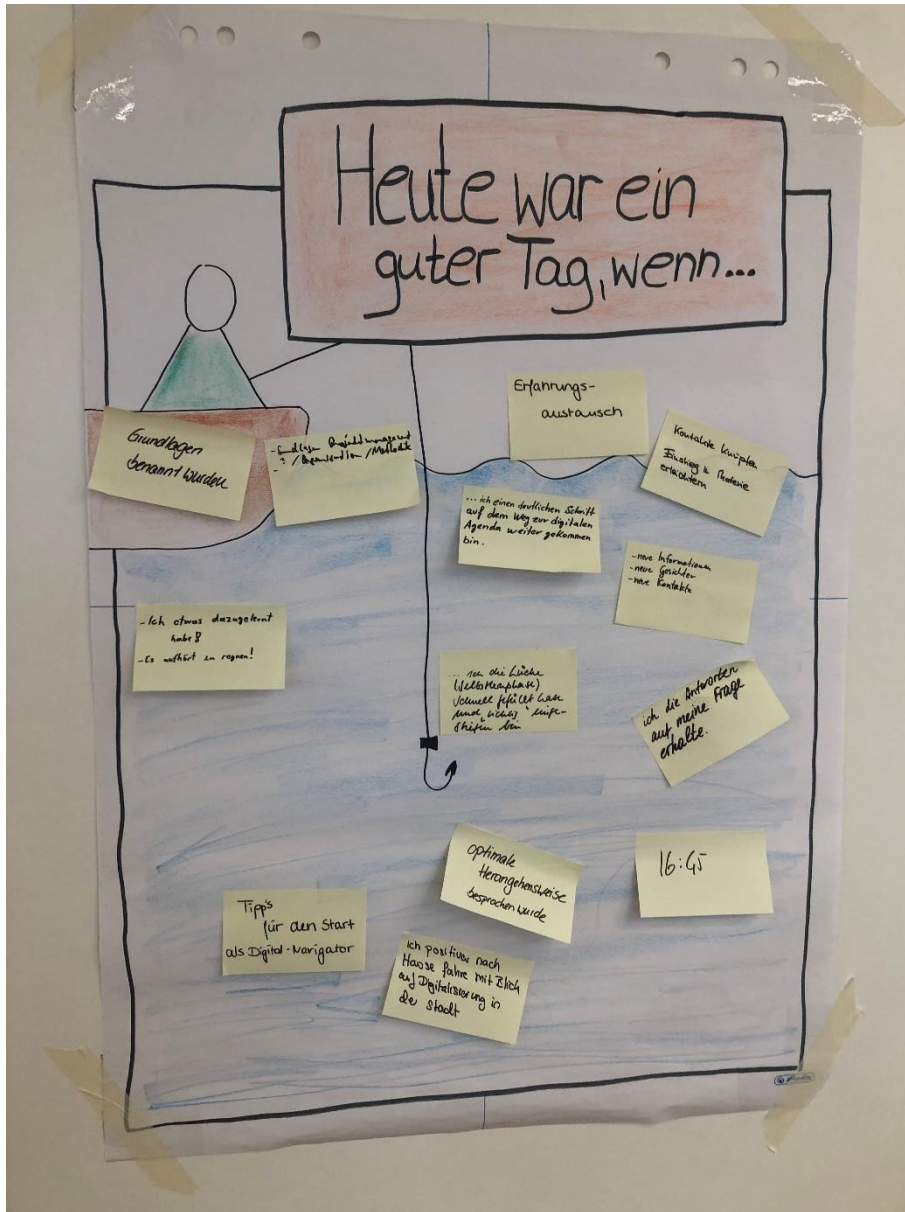 Heute war ein
guter Tag, wenn...
Erfahrungs-
austausch
Grundlagen
benannt wurden
- Grundlagen Projektmanagement
? / Organisation / Methodik
-
Kontakte knüpfen
Einstieg in Materie
erleichtern
... ich einen deutlichen Schritt
auf dem Weg zur digitalen
Agenda weiter gekommen
bin.
- neue Informationen
- neue Gesichter
- neue Kontakte
- Ich etwas dazugelernt
habe!
- Es aufhört zu regnen!
... ich die Lücke
(Selbstlernphase)
schnell gefüllt habe
und "richtig" einge-
stiegen bin
ich die Antworten
auf meine Frage
erhalte.
optimale
Herangehensweise
besprochen wurde
16:45
Tipp's
für den Start
als Digital-Navigator
ich positiver nach
Hause fahre mit Blick
auf Digitalisierung in
der Stadt